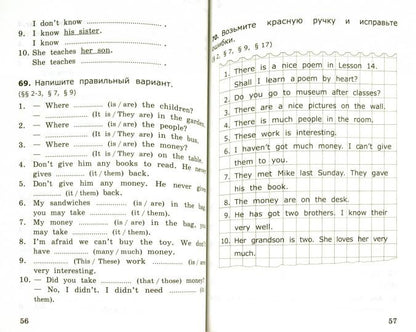 I don't know ....................
9. I know his sister.
I know ....................
10. She teaches her son.
She teaches ....................
69. Напишите правильный вариант.
(§§ 2-3, § 7, § 9)
1. — Where .......... (is / are) the children?
— .......... (It is / They are) in the garden.
2. — Where .......... (is / are) the people?
— .......... (It is / They are) in the bus.
3. — Where .......... (is / are) the money?
— .......... (It is / They are) on the table.
4. Don't give him any books to read. He never
gives .......... (it / them) back.
5. Don't give him any money. He never gives
.......... (it / them) back.
6. My sandwiches .......... (is / are) in the bag,
you may take .......... (it / them).
7. My money .......... (is / are) in the bag, you
may take .......... (it / them).
8. I'm afraid we can't buy the toy. We don't
have .......... (many / much) money.
9. .......... (This / These) work .......... (is / are)
very interesting.
10. — Did you take .......... (that / those) money?
— No, I didn't. I didn't need .......... (it /
them).
56
70. Возьмите красную ручку и исправьте
ошибки.
(§ 2, § 7, § 9, § 17)
1. There is a nice poem in Lesson 14.
Shall I learn a poem by heart?
2. Do you go to museum after classes?
3. There are a nice pictures on the wall.
4. There is much people in the room.
5. These work is interesting.
6. I haven't got much money. I can't give
them to you.
7. They met Mike last Sunday. They gave
his the book.
8. The money are on the desk.
9. He has got two brothers. I know their
very well.
10. Her grandson is two. She loves her very
much.
57